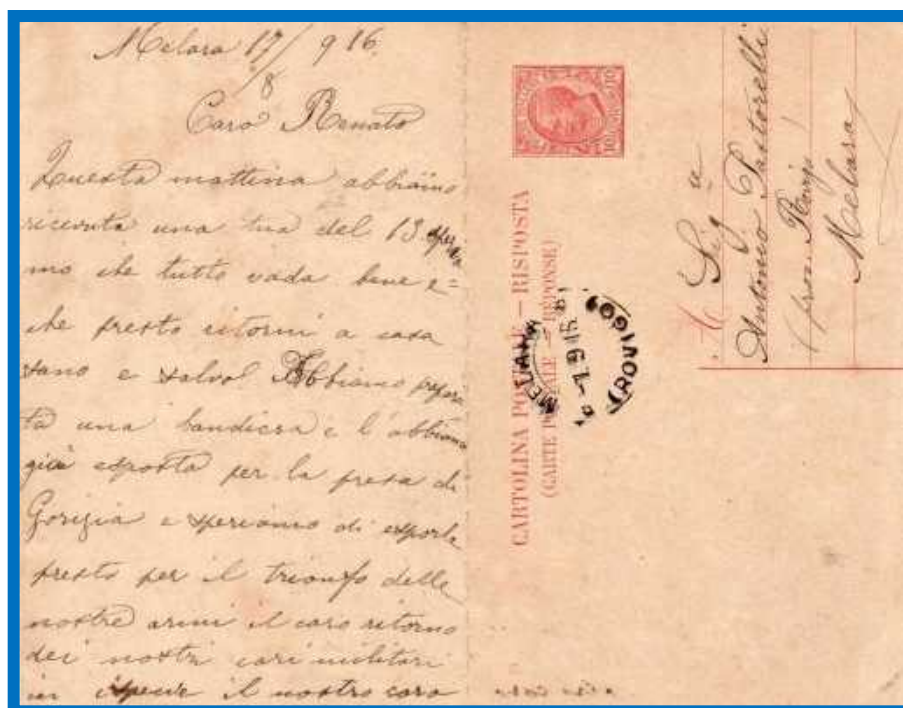 Melara 17/8 916.
Caro Renato
Questa mattina abbiamo
ricevuta una tua del 13 speria
mo che tutto vada bene e=
che presto ritorni a casa
sano e salvo! Abbiamo prepara
ta una bandiera e l'abbiamo
già esposta per la presa di
Gorizia e speriamo di esporla
presto per il trionfo delle
nostre armi il caro ritorno
dei nostri cari militari
in il nostro caro
CARTOLINA POSTALE — RISPOSTA
(CARTE POSTALE — RÉPONSE)
ROVIGO
Al Sig
Antonio Pastorelli
(prov. Rovigo)
Melara